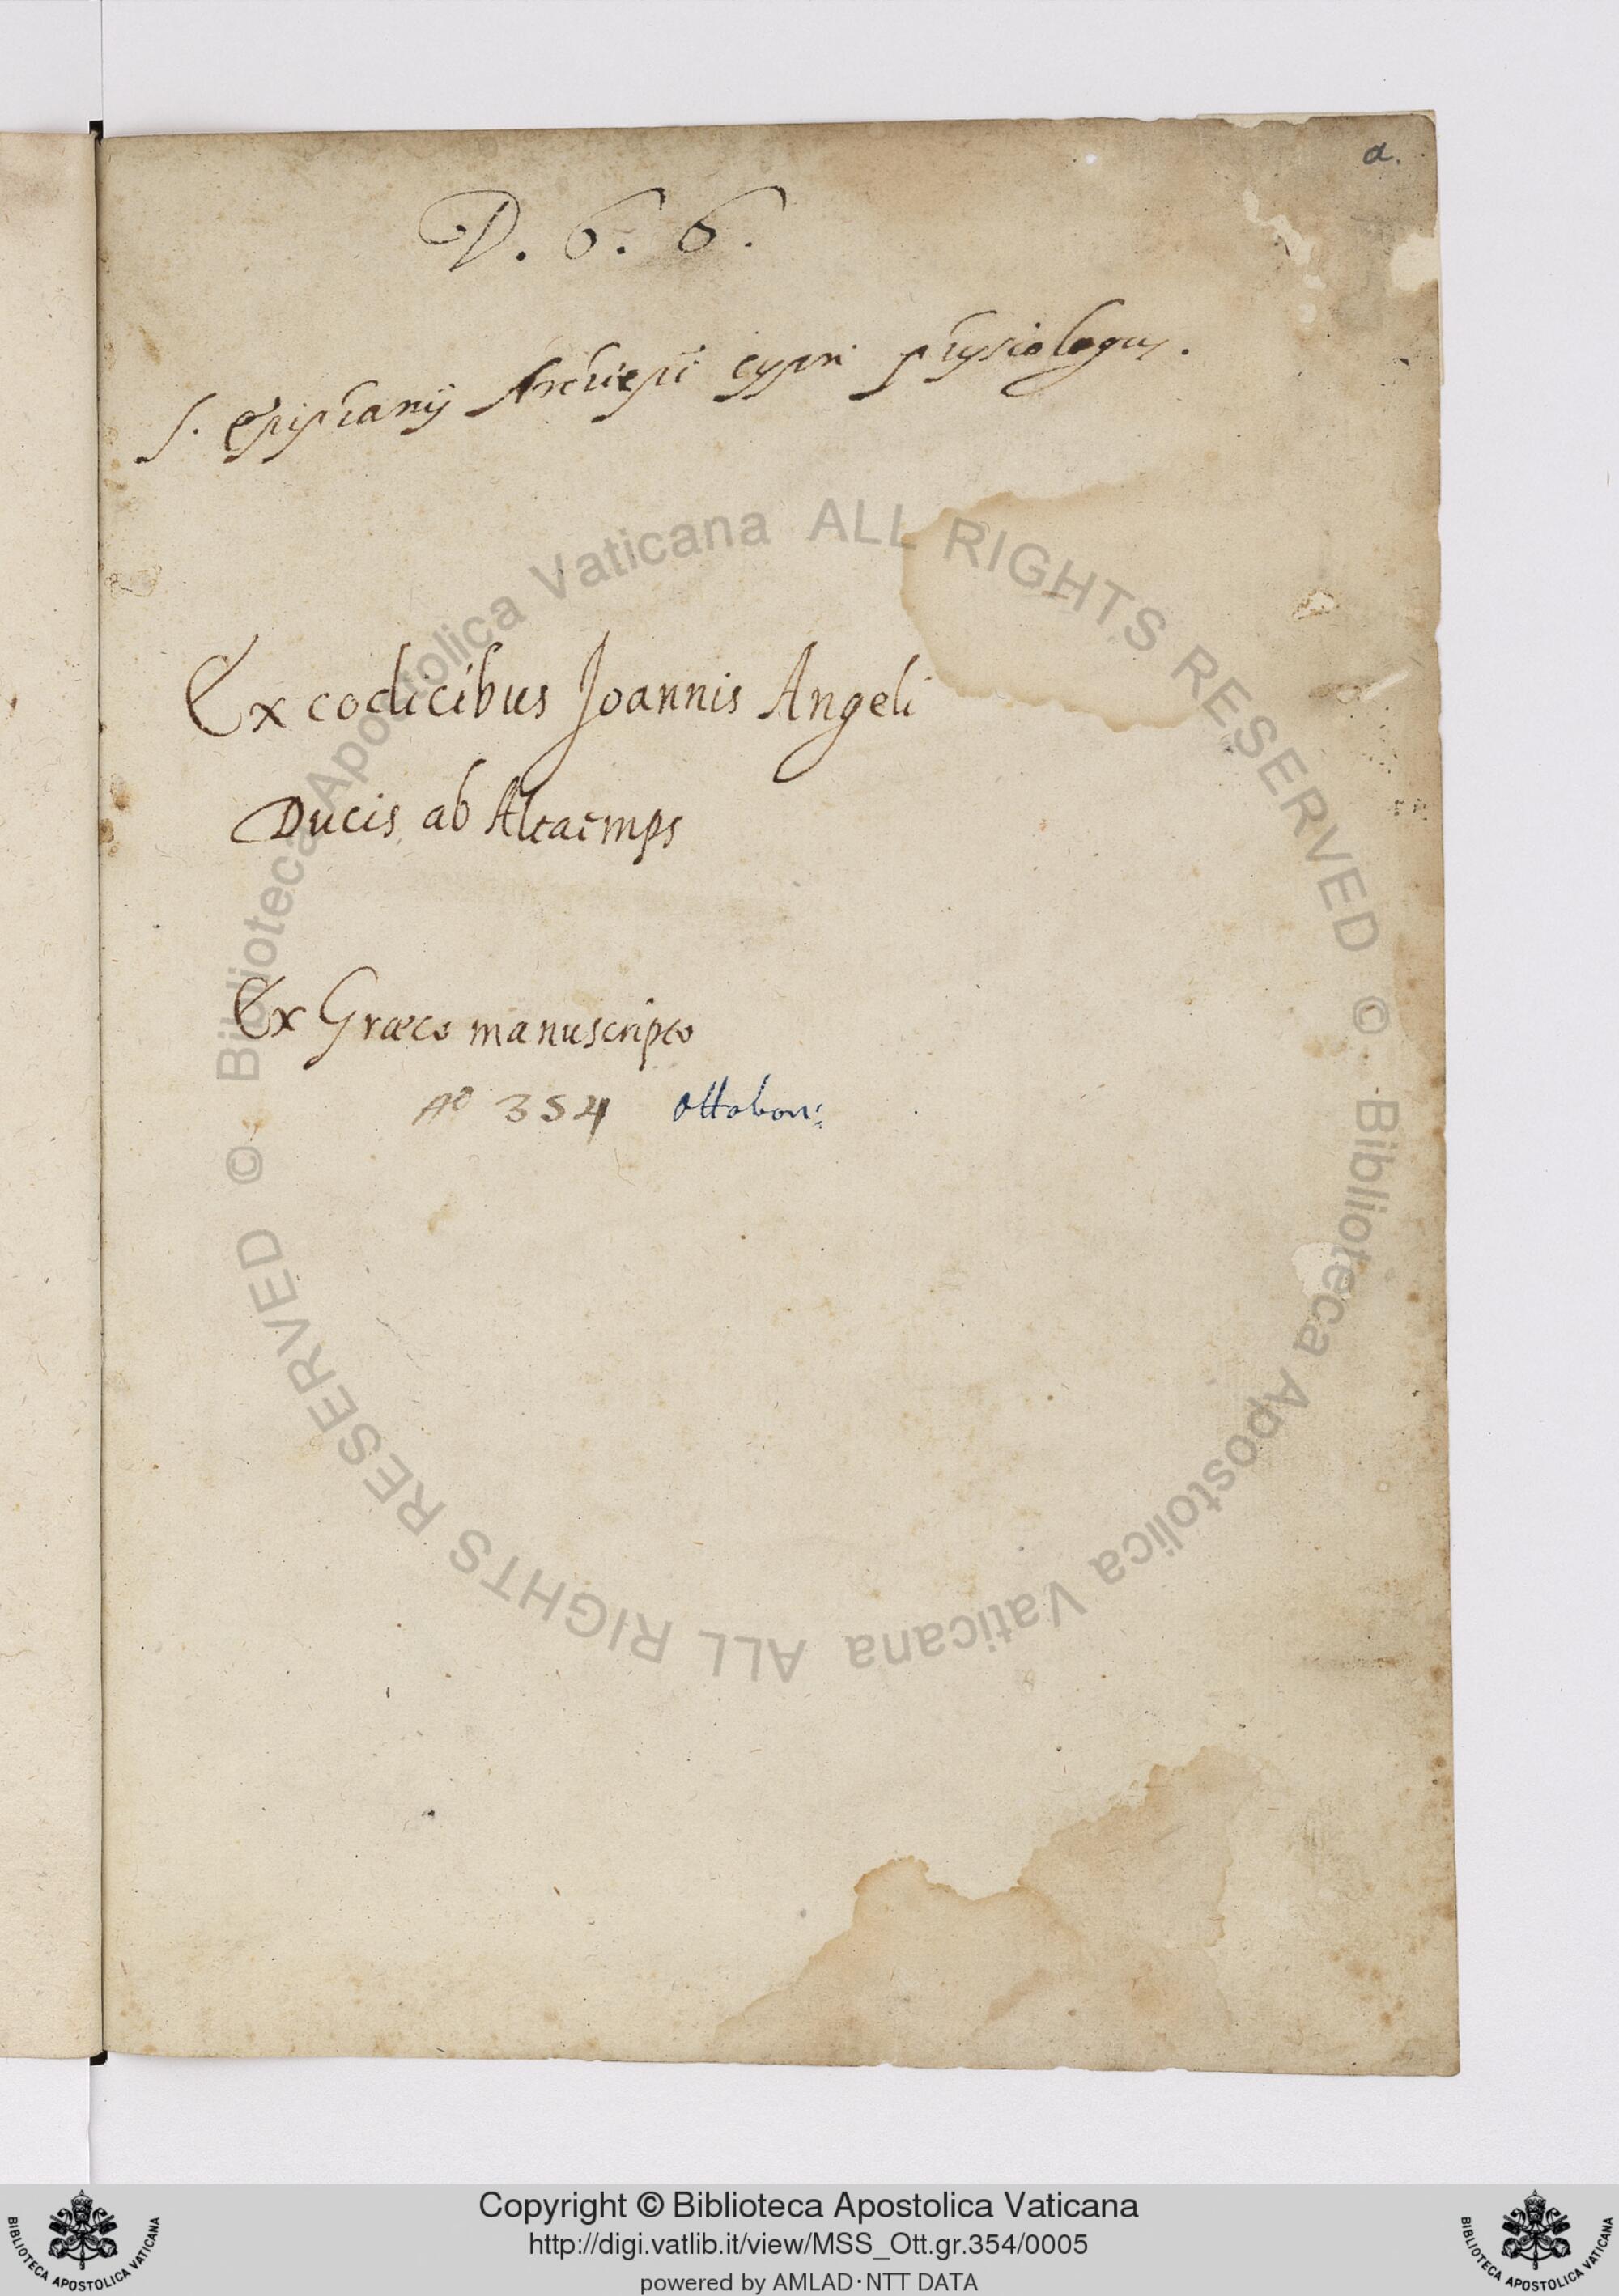 a.
D. 6. 6.
S. Epiphanij Archiepi cypri physiologus.
Ex codicibus Joannis Angeli
Ducis ab Altaemps
Ex Græco manuscripto
no 354 Ottobon:
© Biblioteca Apostolica Vaticana ALL RIGHTS RESERVED
© Biblioteca Apostolica Vaticana ALL RIGHTS RESERVED
Copyright © Biblioteca Apostolica Vaticana
http://digi.vatlib.it/view/MSS_Ott.gr.354/0005
powered by AMLAD·NTT DATA
BIBLIOTECA APOSTOLICA VATICANA
BIBLIOTECA APOSTOLICA VATICANA